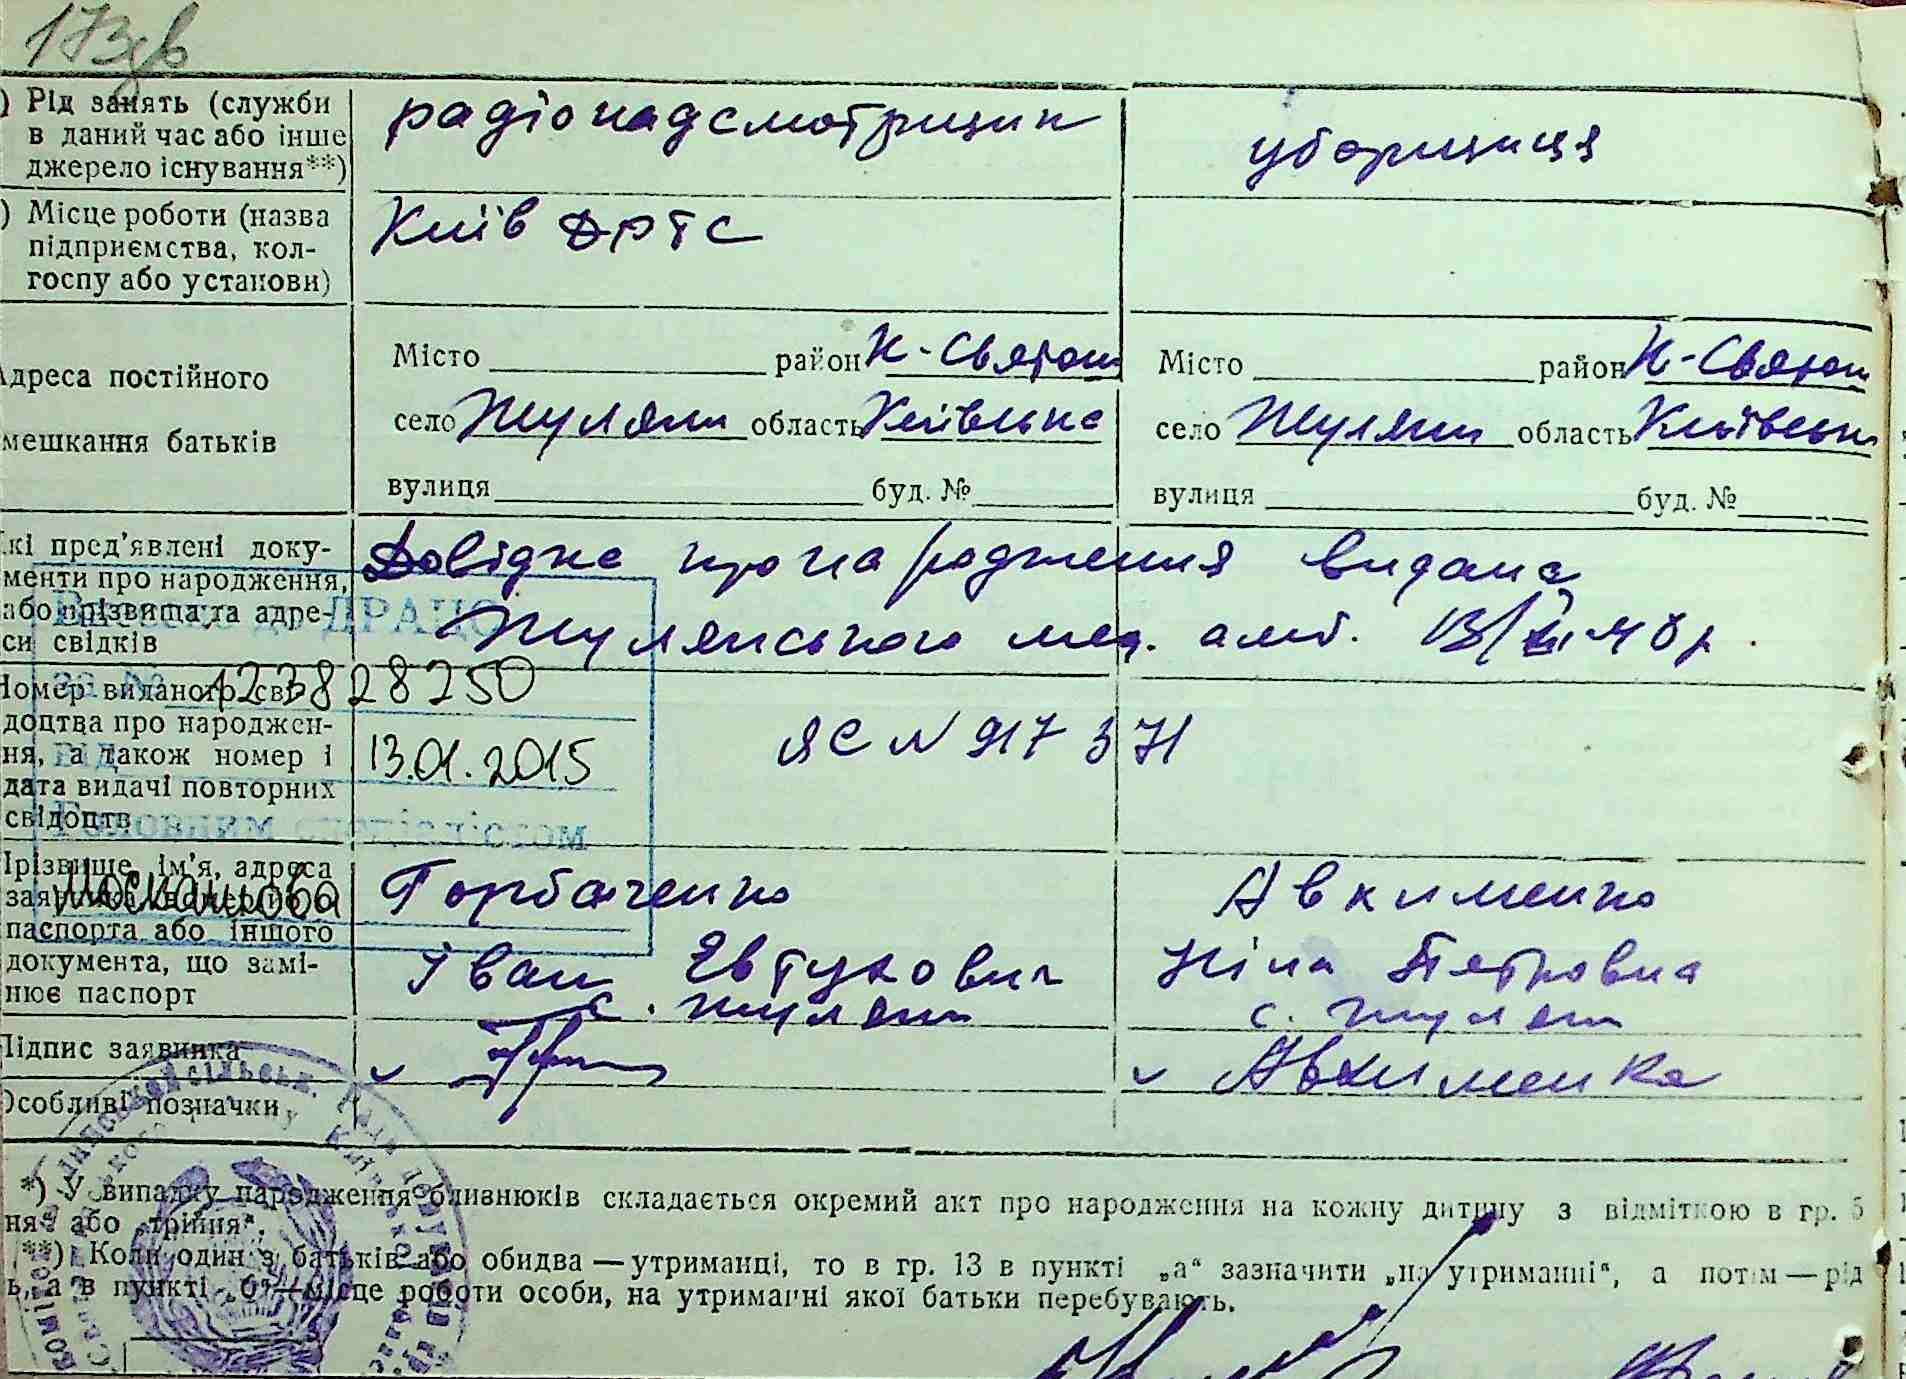 173зв
) Рід занять (служби
в даний час або інше
джерело існування**)
радіонадсмотрищик
уборщиця
) Місце роботи (назва
підприємства, кол-
госпу або установи)
Київ ДРТС
Адреса постійного
мешкання батьків
Місто район К-Святош
село Жуляни область Київська
вулиця буд. №
Місто район К-Святош
село Жуляни область Київськ
вулиця буд. №
Які пред'явлені доку-
менти про народження,
або прізвища та адре-
си свідків
Довідка про народження видана
Жулянською мед. амб.
Номер виданого сві-
доцтва про народжен-
ня, а також номер і
дата видачі повторних
свідоцтв
ЯС № 917571
Внесено до ДРАЦС
за № 123828250
від 13.01.2015
Головним спеціалістом
Прізвище, ім'я, адреса
паспорта або іншого
документа, що замі-
нює паспорт
Горбаченко
Іван Евтухович
с. Жуляни
Авхименко
Ніна Петровна
с. Жуляни
Підпис заявника
Авхименко
Особливі позначки
*) У випадку народження близнюків складається окремий акт про народження на кожну дитину з відміткою в гр. 5
ня" або „трійня".
**) Коли один з батьків або обидва — утриманці, то в гр. 13 в пункті „а" зазначити „на утриманні", а потім — рід
ь, а в пункті „б" — місце роботи особи, на утриманні якої батьки перебувають.